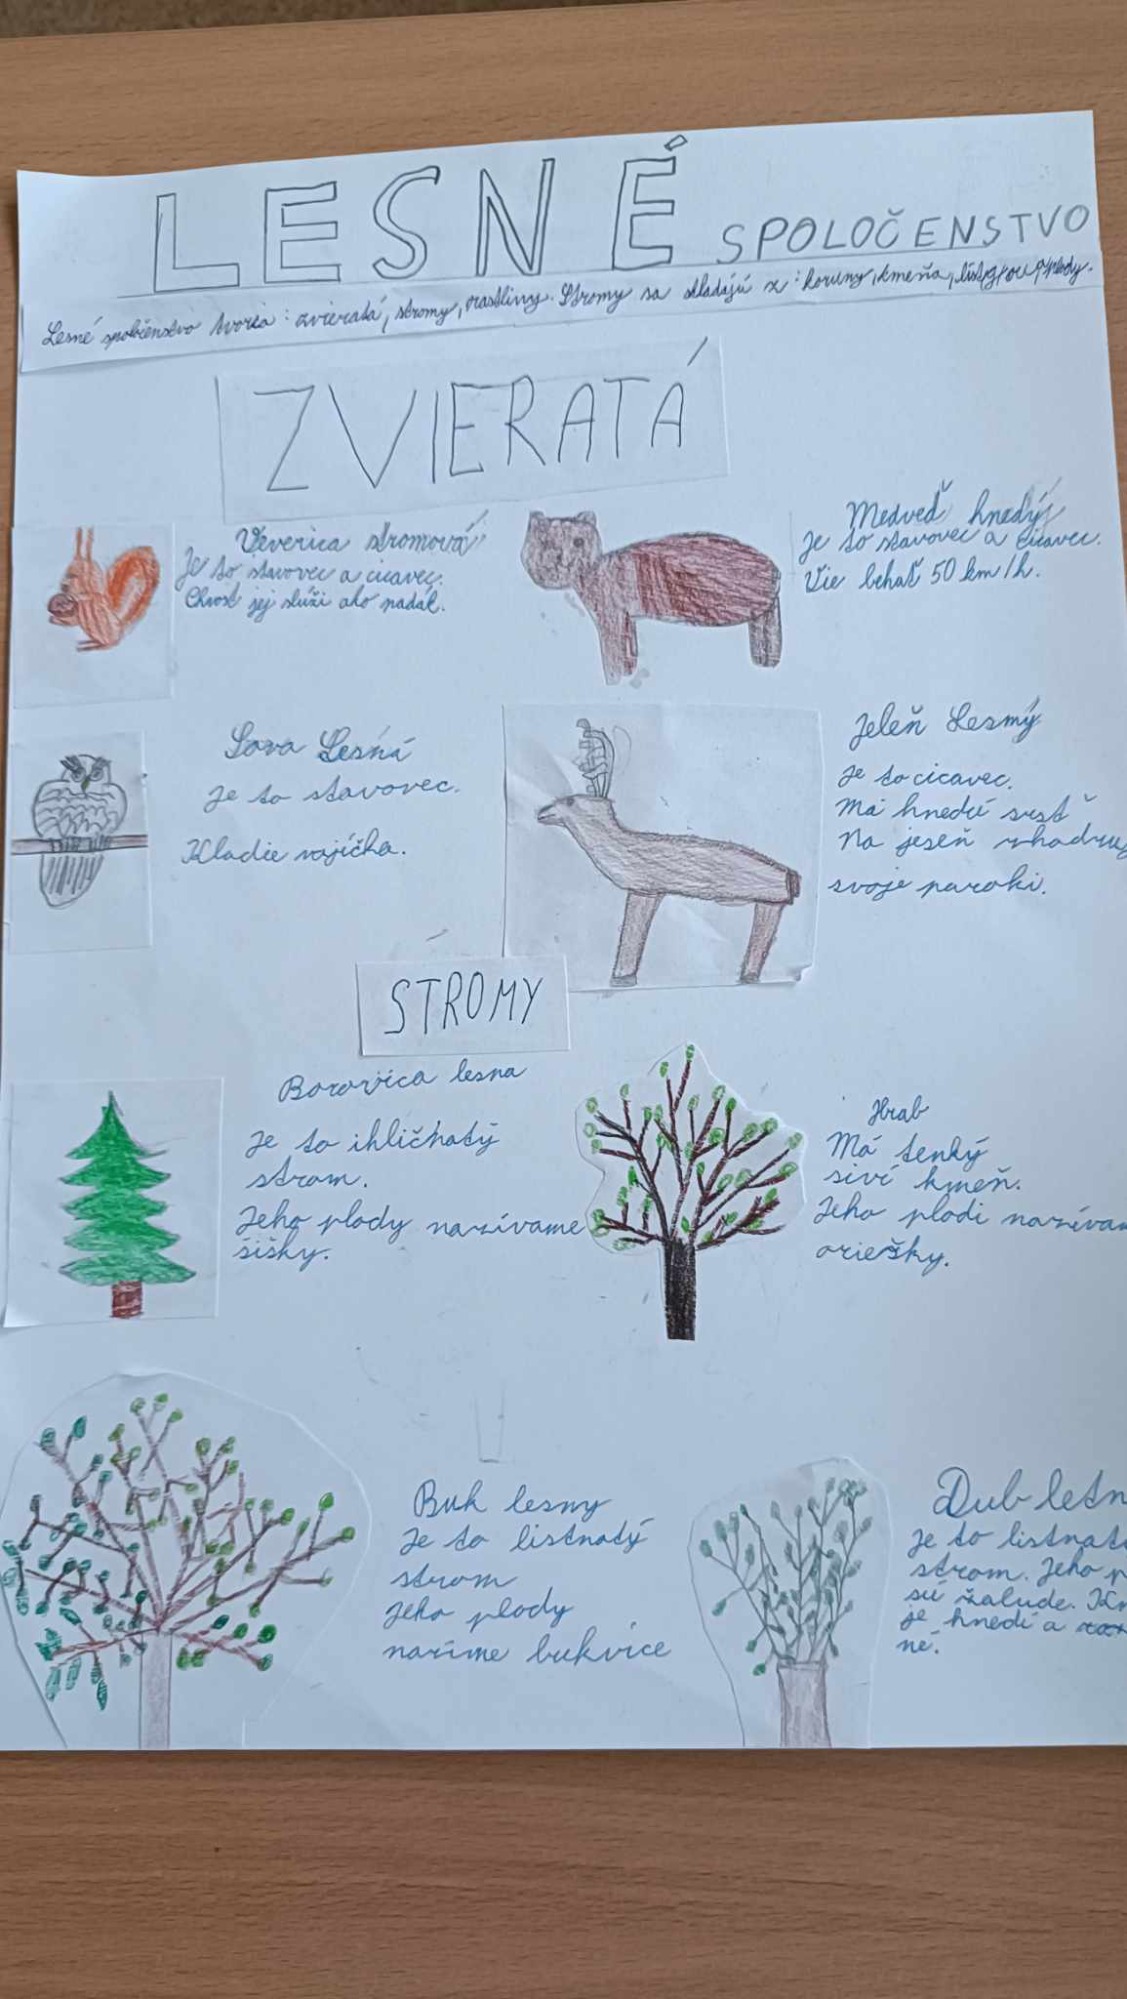 LESNÉ SPOLOČENSTVO
Lesné spoločenstvo tvoria: zvieratá, stromy, rastliny. Stromy sa skladajú z: koruny, kmeňa, plody.
ZVIERATÁ
Veverica stromová
Je to stavovec a cicavec.
Chvost jej slúži ako padák.
Medveď hnedý
Je to stavovec a cicavec.
Vie behať 50 km/h.
Sova Lesná
Je to stavovec.
Kladie vajíčka.
Jeleň Lesmý
Je to cicavec.
Má hnedú srsť
Na jeseň
svoje parohi.
STROMY
Borovica lesna
Je to ihličnatý
strom.
Jeho plody nazívame
šišky.
Hrab
Má tenký
siví kmeň.
Jeho plodi nazívam
oriešky.
Buk lesny
Je to listnatý
strom
Jeho plody
nazíme bukvice
Dub letn
Je to listnat
strom. Jeho p
sú žalude. K
je hnedí a
né.